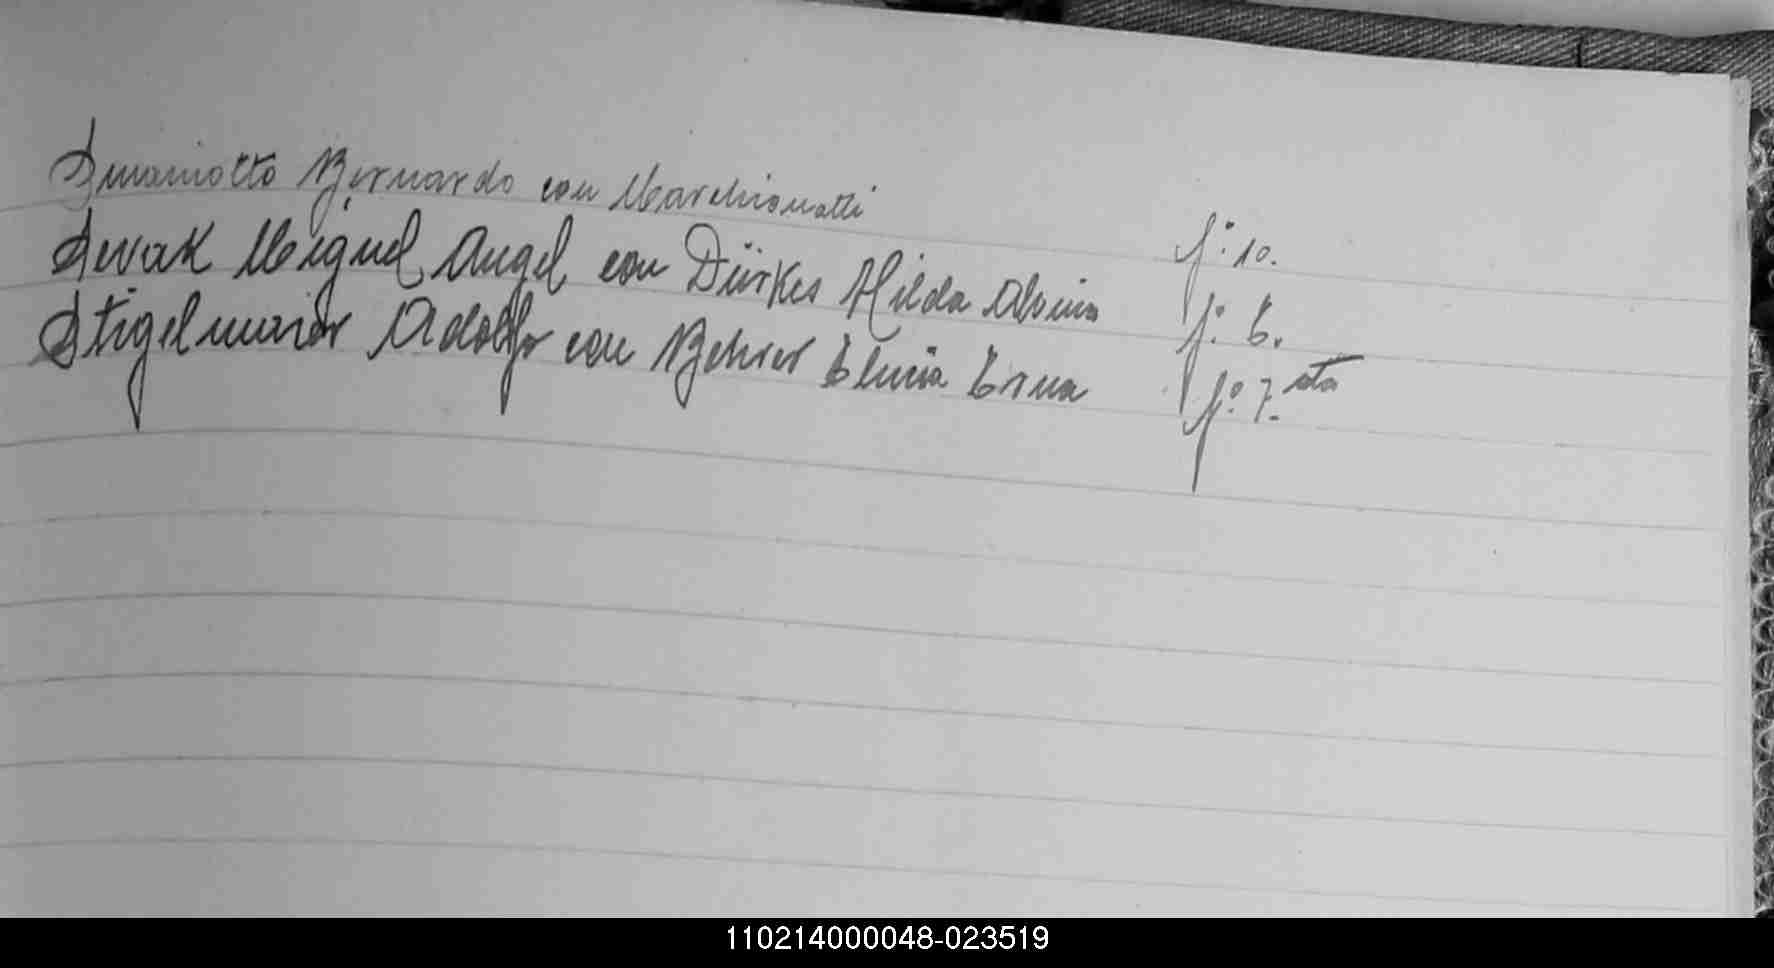 Bernardo con Marchionatti f.° 10.
Sevak Miguel Angel con Dürkes Hilda Alvina f.° 6.
Stigelmaier Adolfo con Behrer Elvira Erna f.° 7. vta
110214000048-023519